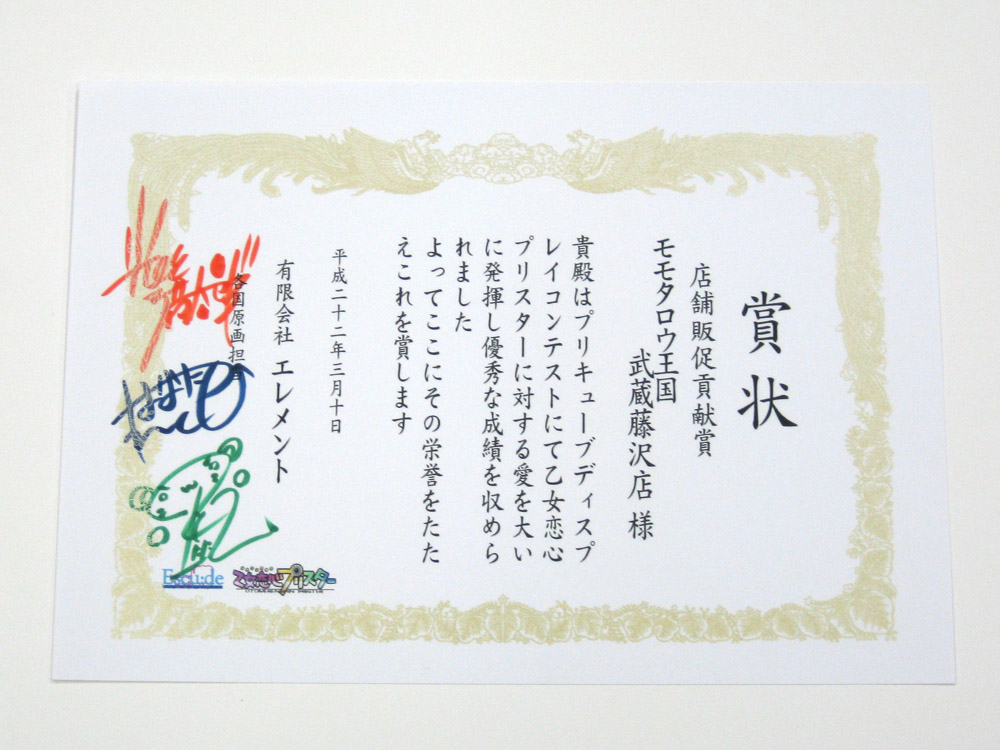 賞状
店舗販促貢献賞
モモタロウ王国
武蔵藤沢店 様
貴殿はプリキューブディスプ
レイコンテストにて乙女恋心
プリスターに対する愛を大い
に発揮し優秀な成績を収めら
れました
よってここにその栄誉をたた
えこれを賞します
平成二十二年三月十日
有限会社 エレメント
各国原画担当
Ex:clude
乙女恋心プリスター